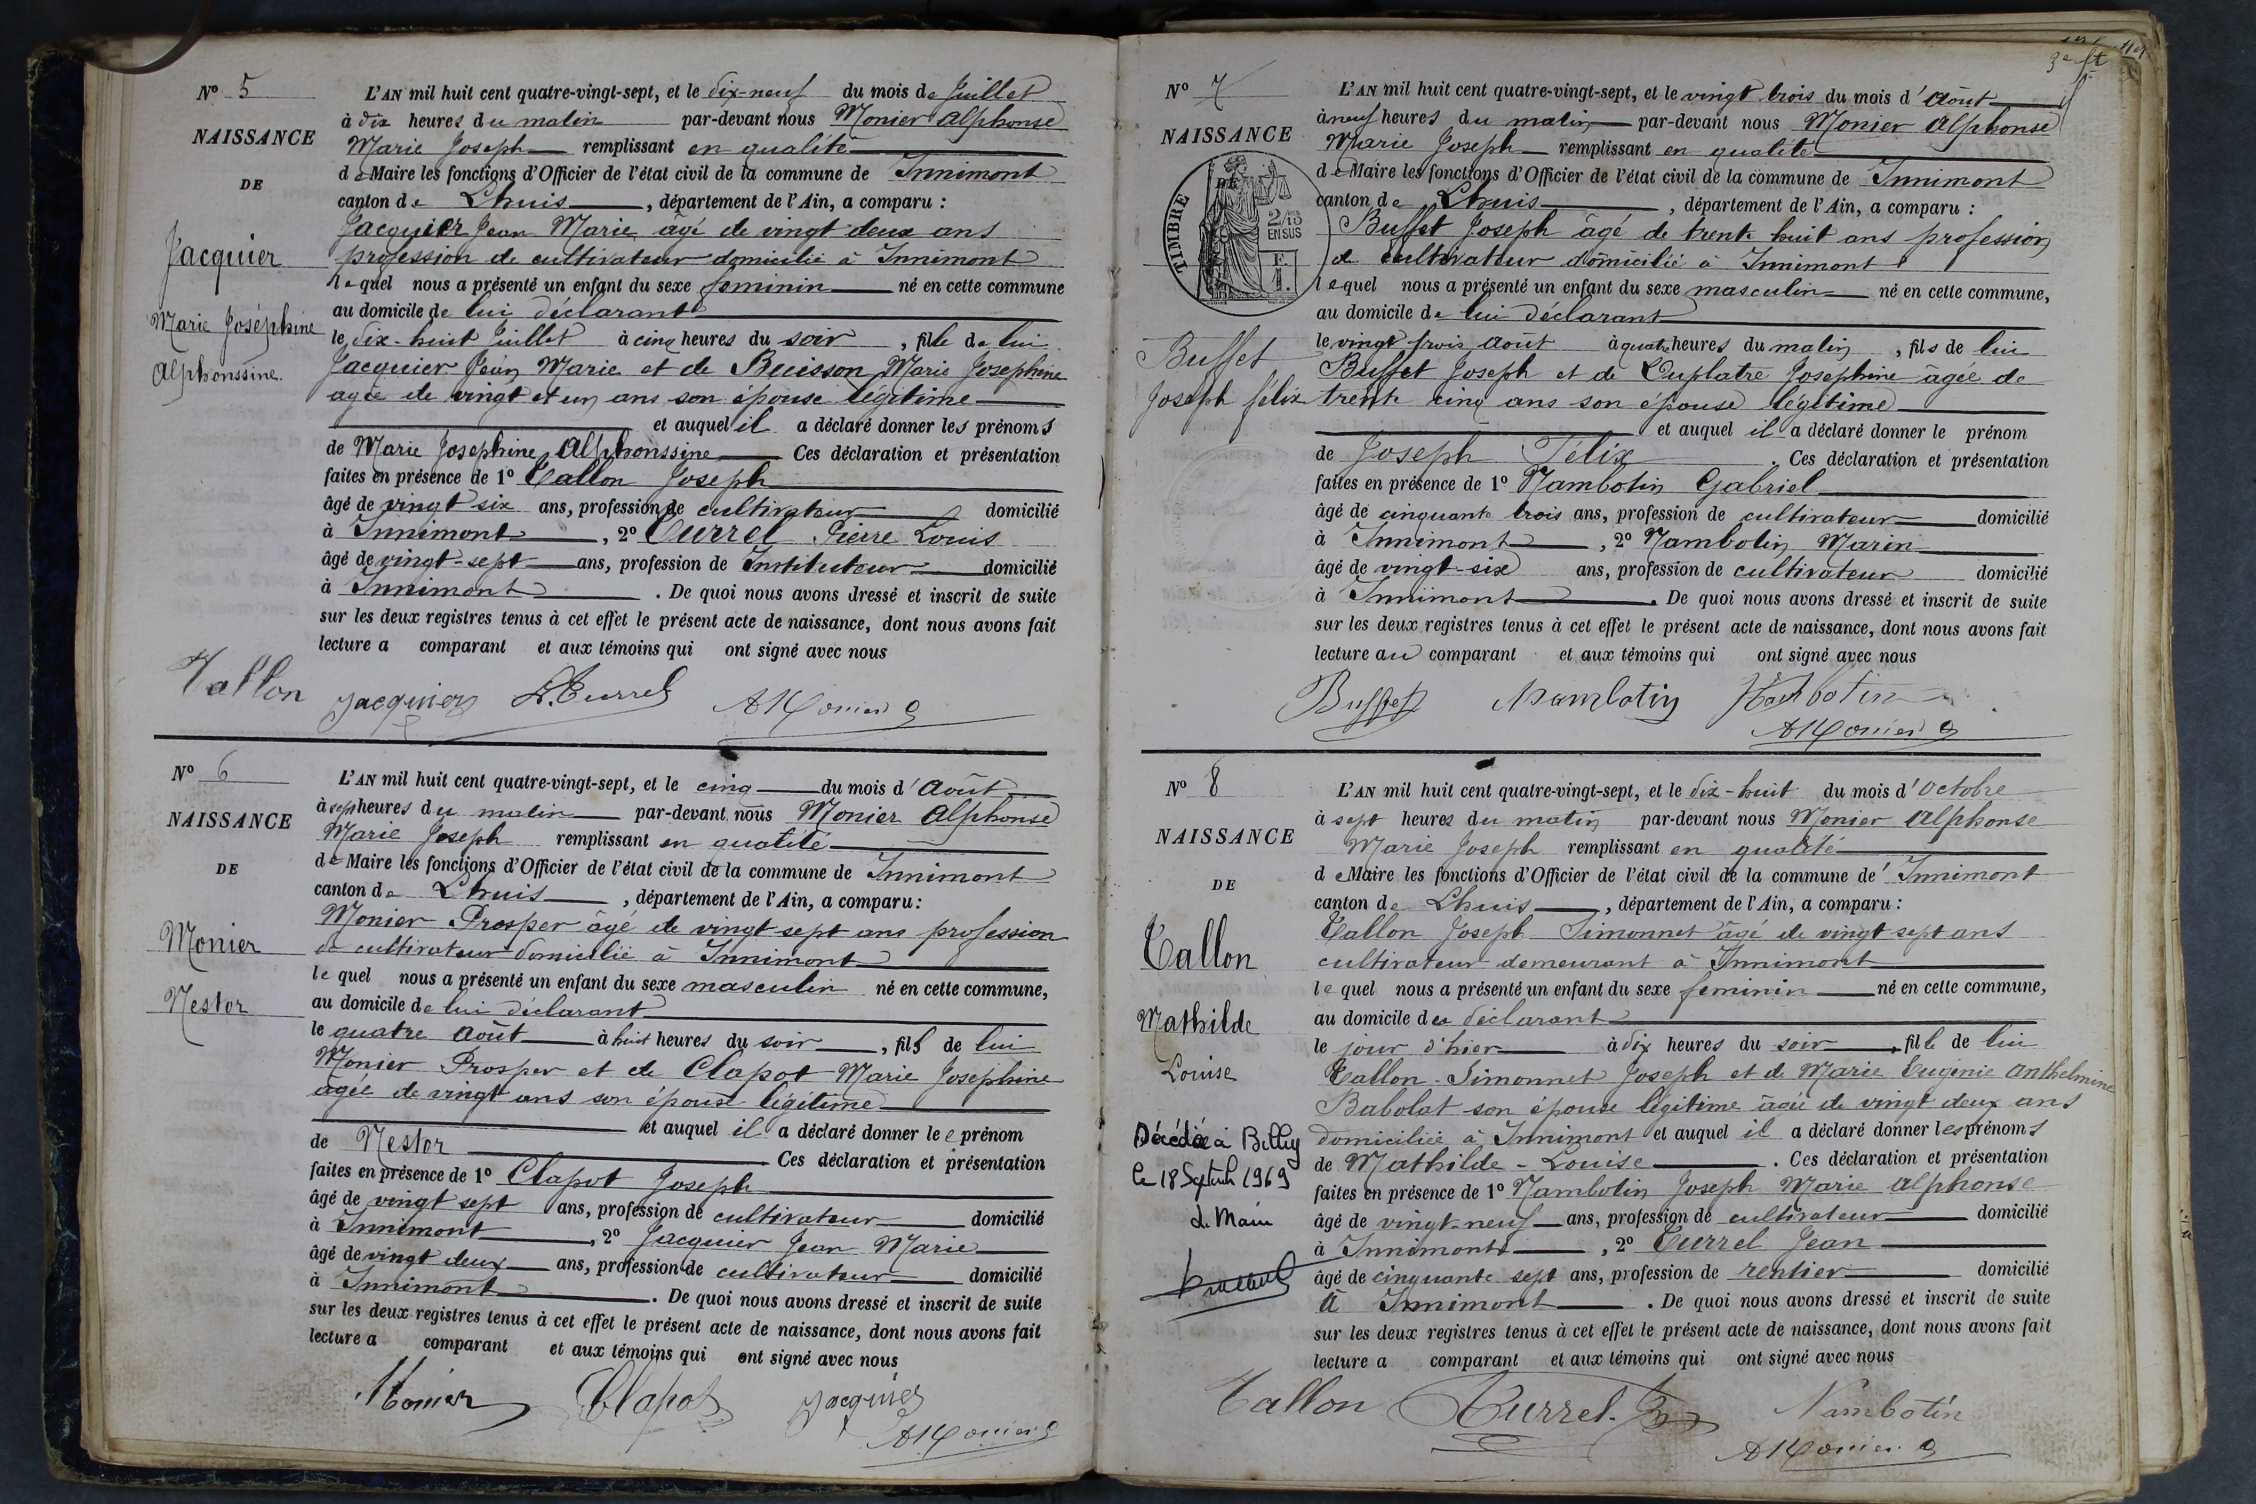 Nº 5
NAISSANCE
DE
Jacquier
Marie Joséphine
Alphonssine.
L'AN mil huit cent quatre-vingt-sept, et le dix-neuf du mois de Juillet
à dix heures du matin par-devant nous Monier Alphonse
Marie Joseph remplissant en qualité
de Maire les fonctions d'Officier de l'état civil de la commune de Innimont
canton de Lhuis, département de l'Ain, a comparu :
Jacquier Jean Marie âgé de vingt deux ans
profession de cultivateur domicilié à Innimont
lequel nous a présenté un enfant du sexe féminin né en cette commune
au domicile de lui déclarant
le dix-huit Juillet à cinq heures du soir, fille de lui
Jacquier Jean Marie et de Buisson Marie Josephine
agée de vingt et un ans son épouse légitime
et auquel il a déclaré donner les prénoms
de Marie Josephine Alphonssine Ces déclaration et présentation
faites en présence de 1º Tallon Joseph
âgé de vingt six ans, profession de cultivateur domicilié
à Innimont, 2º Turrel Pierre Louis
âgé de vingt-sept ans, profession de Instituteur domicilié
à Innimont. De quoi nous avons dressé et inscrit de suite
sur les deux registres tenus à cet effet le présent acte de naissance, dont nous avons fait
lecture a comparant et aux témoins qui ont signé avec nous
Tallon Jacquier L. Turrel A Monier
Nº 6
NAISSANCE
DE
Monier
Nestor
L'AN mil huit cent quatre-vingt-sept, et le cinq du mois d'Août
à sept heures du matin par-devant nous Monier Alphonse
Marie Joseph remplissant en qualité
de Maire les fonctions d'Officier de l'état civil de la commune de Innimont
canton de Lhuis, département de l'Ain, a comparu :
Monier Prosper âgé de vingt sept ans profession
de cultivateur domicilié à Innimont
lequel nous a présenté un enfant du sexe masculin né en cette commune,
au domicile de lui déclarant
le quatre Août à huit heures du soir, fils de lui
Monier Prosper et de Clapot Marie Josephine
agée de vingt ans son épouse légitime
et auquel il a déclaré donner le e prénom
de Nestor Ces déclaration et présentation
faites en présence de 1º Clapot Joseph
âgé de vingt sept ans, profession de cultivateur domicilié
à Innimont, 2º Jacquier Jean Marie
âgé de vingt deux ans, profession de cultivateur domicilié
à Innimont. De quoi nous avons dressé et inscrit de suite
sur les deux registres tenus à cet effet le présent acte de naissance, dont nous avons fait
lecture a comparant et aux témoins qui ont signé avec nous
Monier Clapot Jacquier
A Monier
Nº 7
NAISSANCE
DE
TIMBRE
2/10
EN SUS
F.
1.
Buffet
Joseph félix
L'AN mil huit cent quatre-vingt-sept, et le vingt trois du mois d'Août
à neuf heures du matin par-devant nous Monier Alphonse
Marie Joseph remplissant en qualité
de Maire les fonctions d'Officier de l'état civil de la commune de Innimont
canton de Lhuis, département de l'Ain, a comparu :
Buffet Joseph âgé de trente huit ans profession
de cultivateur domicilié à Innimont
lequel nous a présenté un enfant du sexe masculin né en cette commune,
au domicile de lui déclarant
le vingt trois Août à quatre heures du matin, fils de lui
Buffet Joseph et de Duplatre Josephine âgée de
trente cinq ans son épouse légitime
et auquel il a déclaré donner le prénom
de Joseph Félix. Ces déclaration et présentation
faites en présence de 1º Nambotin Gabriel
âgé de cinquante trois ans, profession de cultivateur domicilié
à Innimont, 2º Nambotin Marin
âgé de vingt-six ans, profession de cultivateur domicilié
à Innimont. De quoi nous avons dressé et inscrit de suite
sur les deux registres tenus à cet effet le présent acte de naissance, dont nous avons fait
lecture au comparant et aux témoins qui ont signé avec nous
Buffet Nambotin Nambotin
A Monier
Nº 8
NAISSANCE
DE
Tallon
Mathilde
Louise
Décédée à Belley
le 18 Septemb 1969
Le Maire
L'AN mil huit cent quatre-vingt-sept, et le dix-huit du mois d'Octobre
à sept heures du matin par-devant nous Monier Alphonse
Marie Joseph remplissant en qualité
de Maire les fonctions d'Officier de l'état civil de la commune de Innimont
canton de Lhuis, département de l'Ain, a comparu :
Tallon Joseph Simonnet âgé de vingt sept ans
cultivateur demeurant à Innimont
lequel nous a présenté un enfant du sexe féminin né en cette commune,
au domicile du déclarant
le jour d'hier à dix heures du soir, fille de lui
Tallon-Simonnet Joseph et de Marie Eugénie Anthelmine
Babolat son épouse légitime âgée de vingt deux ans
domiciliée à Innimont et auquel il a déclaré donner les prénoms
de Mathilde-Louise. Ces déclaration et présentation
faites en présence de 1º Nambotin Joseph Marie Alphonse
âgé de vingt-neuf ans, profession de cultivateur domicilié
à Innimont, 2º Turrel Jean
âgé de cinquante sept ans, profession de rentier domicilié
à Innimont. De quoi nous avons dressé et inscrit de suite
sur les deux registres tenus à cet effet le présent acte de naissance, dont nous avons fait
lecture a comparant et aux témoins qui ont signé avec nous
Tallon Turrel Nambotin
A Monier